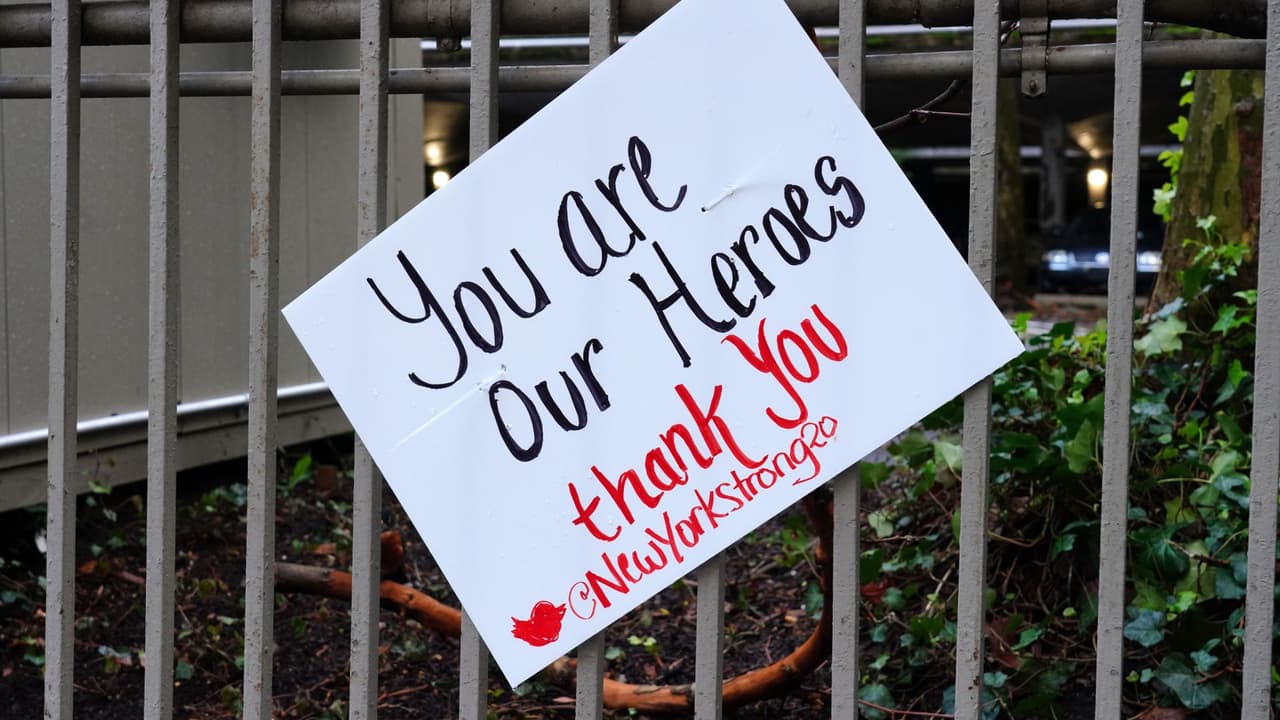 You are
our Heroes
thank You
@NewYorkstrong20